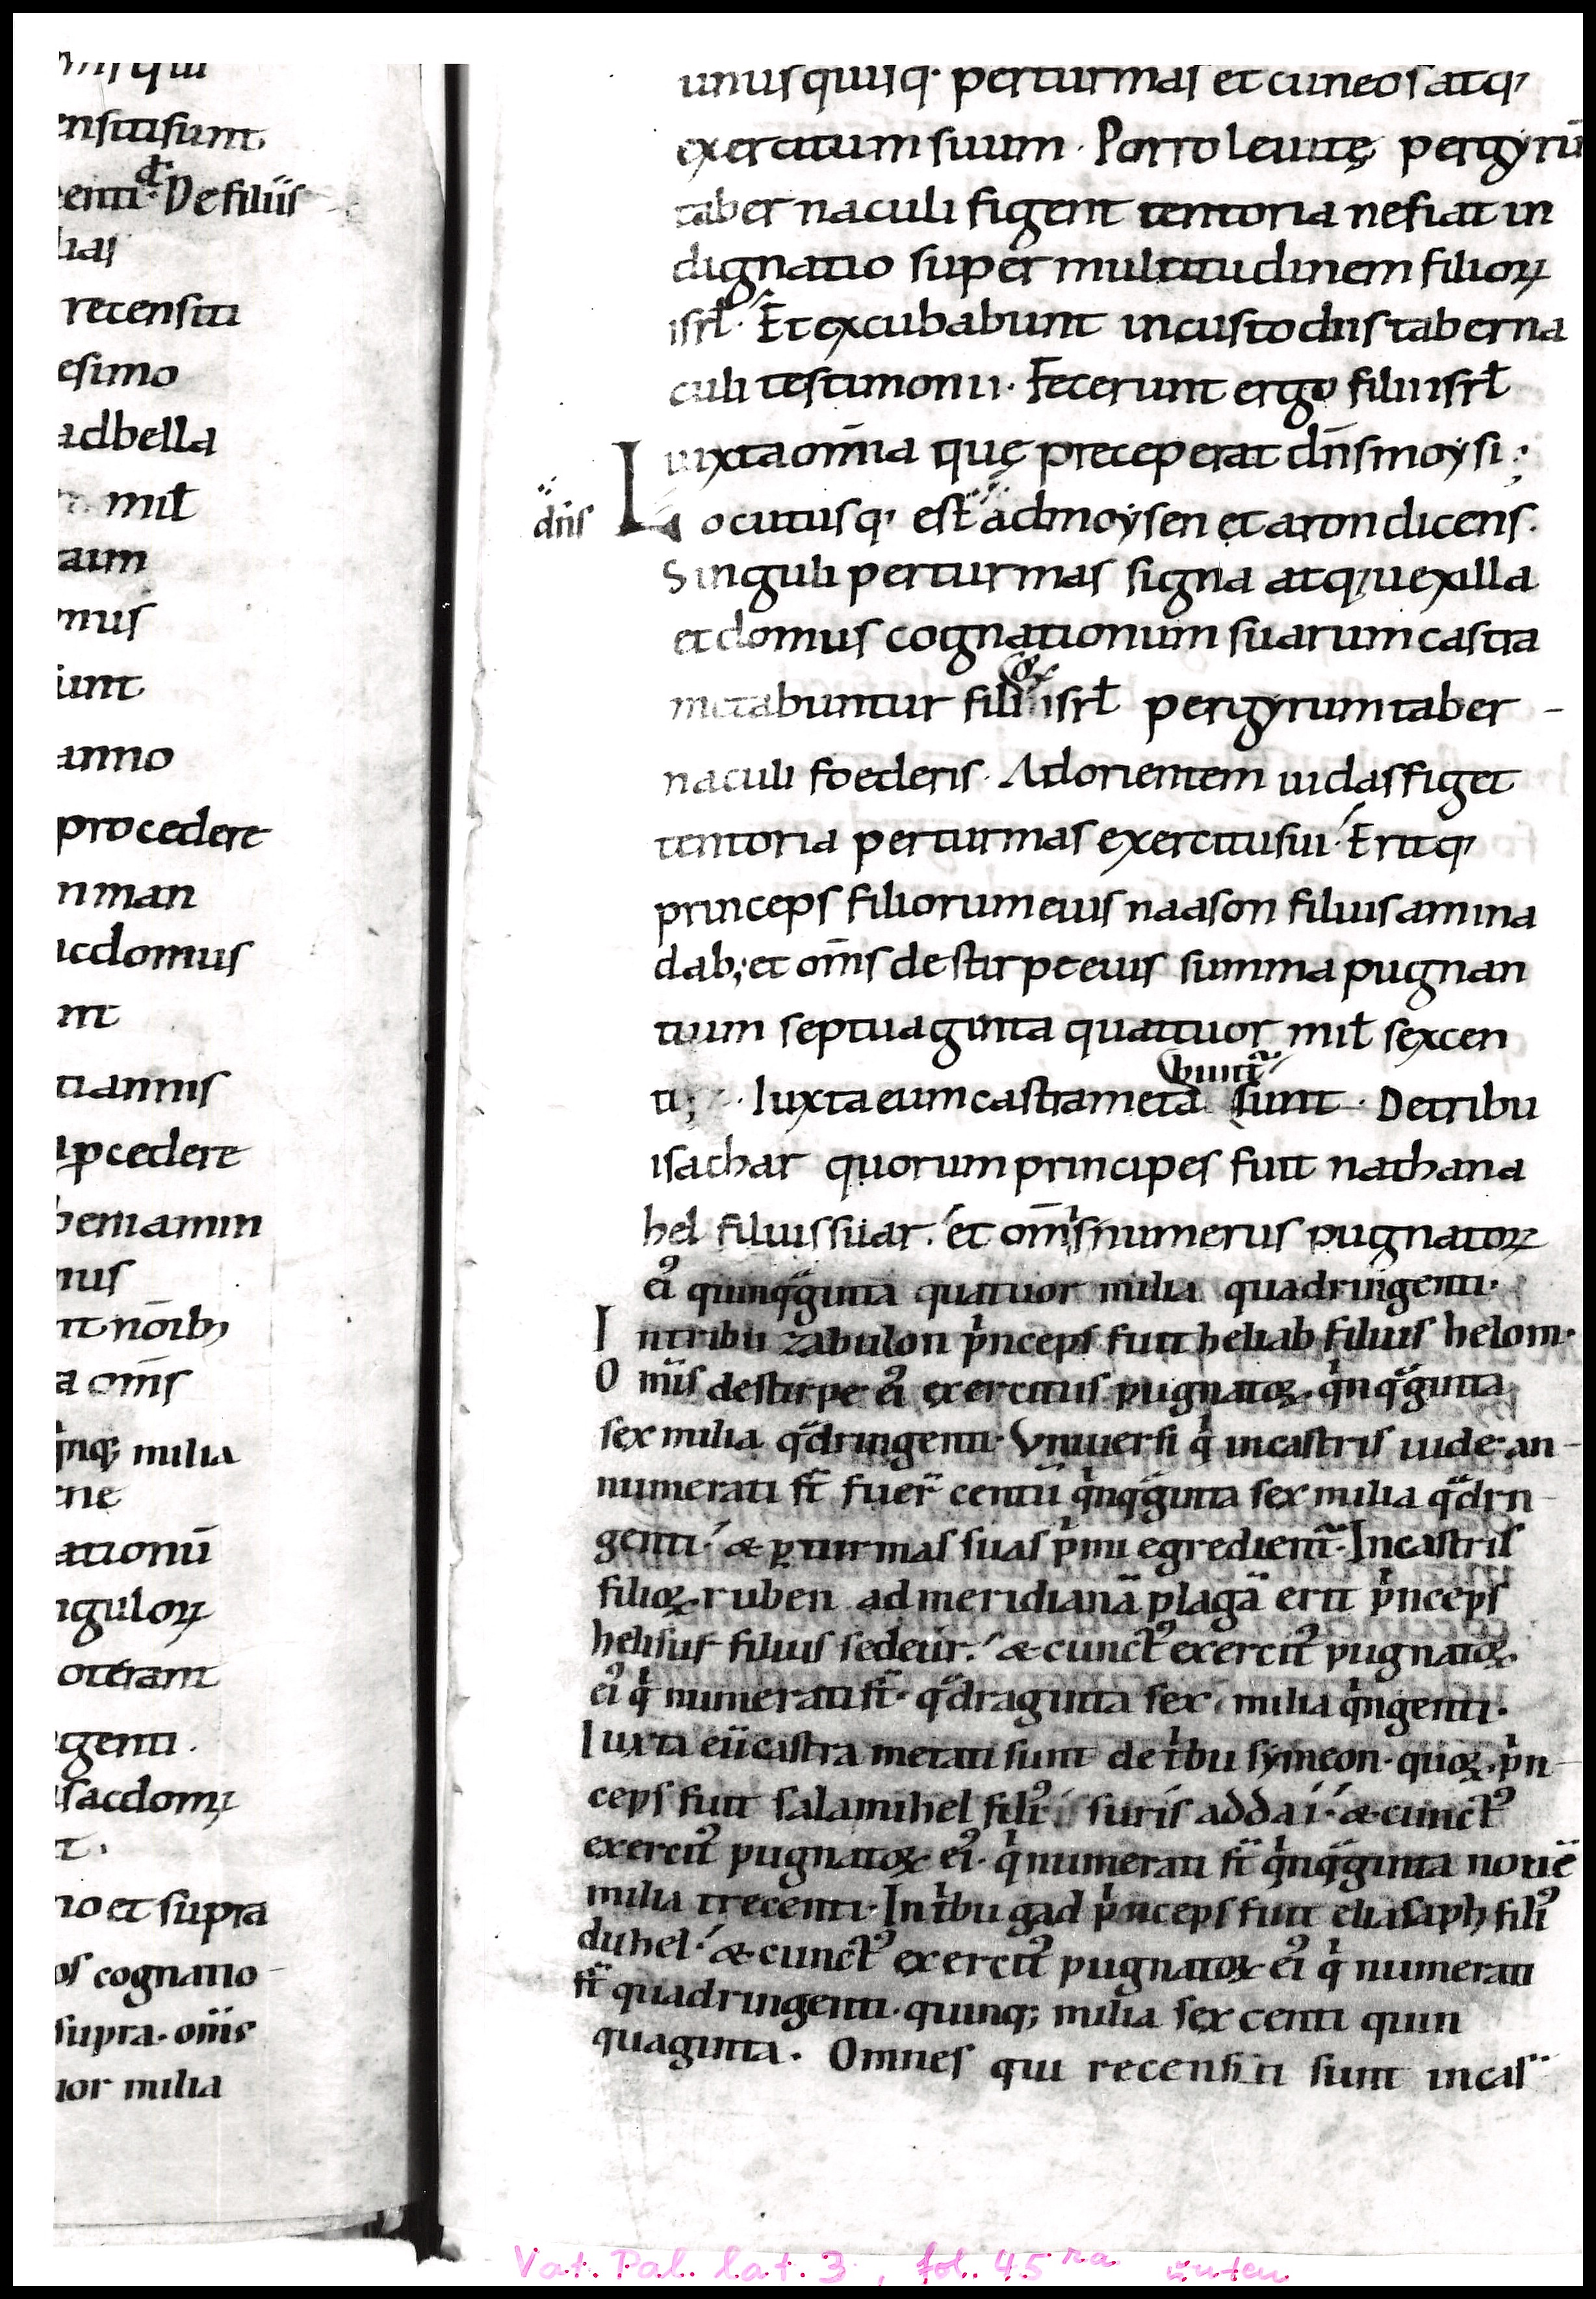 ensiti sunt
enti. d̄. De filiis
lias
recensiti
esimo
ad bella
mił
aim
mus
iunt
anno
procedere
n man
ac domus
nt
ti annis
a p̱cedere
beniamin
mus
nt nōib;
a om̄s
q̇nq; milia
ene
ationū
nguloꝝ
poterant
ngenti.
ac domꝰ
t.
no et supra
os cognatio-
supra. om̄s
uor milia
unus quisq· per turmas et cuneos atq;
exercitum suum · Porro leuitę per gyrū
tabernaculi figent tentoria ne fiat in
dignatio super multitudinem filioꝝ
isrł · Et excubabunt in custodiis taberna
culi testimonii · Fecerunt ergo filii isrł
iuxta om̄ia quę preceperat dn̄s moysi ;
dn̄s Locutusq; est ad moysen et aron dicens.
Singuli per turmas signa atq; uexilla
et domus cognationum suarum castra
metabuntur filioꝝ isrł per gyrum taber-
naculi foederis · Ad orientem iudas figet
tentoria per turmas exercitus sui · Eritq;
princeps filiorum eius naason filius amina
dab; et om̄s de stirpe eius summa pugnan
tium septuaginta quattuor mił sexcen
ti; · Iuxta eum castra meta bunt̄ sunt · De tribu
isachar quorum princeps fuit nathana
hel filius suar · et om̄s numerus pugnatoꝝ
eiꝰ quinqᵃginta quatuor milia quadringenti·
In tribu zabulon pⁱnceps fuit heliab filius helom·
Om̄is de stirpe eiꝰ exercitus pugnatoꝝ · qⁱnqᵃginta
sex milia qᵃdringenti· Vniuersi qⁱ in castris iude an-
numerati st̄ fuer̄ centū qⁱnqᵃginta sex milia qᵃdrin-
genti · & ꝑ turmas suas pⁱmi egredient̄· In castris
filioꝝ ruben ad meridianā plagā erit pⁱnceps
helisur filius sedeur · & cunctꝰ exercitꝰ pugnatoꝝ
eiꝰ qⁱ numerati st̄· qᵃdraginta sex milia qⁱngenti·
Iuxta eū castra metati sunt de tⁱbu symeon · quoꝝ pⁱn-
ceps fuit salamihel filiꝰ suris addai · & cunctꝰ
exercitꝰ pugnatoꝝ eiꝰ · qⁱ numerati st̄ qⁱnqᵃginta nouē
milia trecenti· In tⁱbu gad pⁱnceps fuit eliasaph filiꝰ
duhel · & cunctꝰ exercitꝰ pugnatoꝝ eiꝰ qⁱ numerati
st̄ quadringenti · quinq; milia sexcenti quin
quaginta. Omnes qui recensiti sunt in cas
Vat. Pal. lat. 3, fol. 45ʳᵃ unten